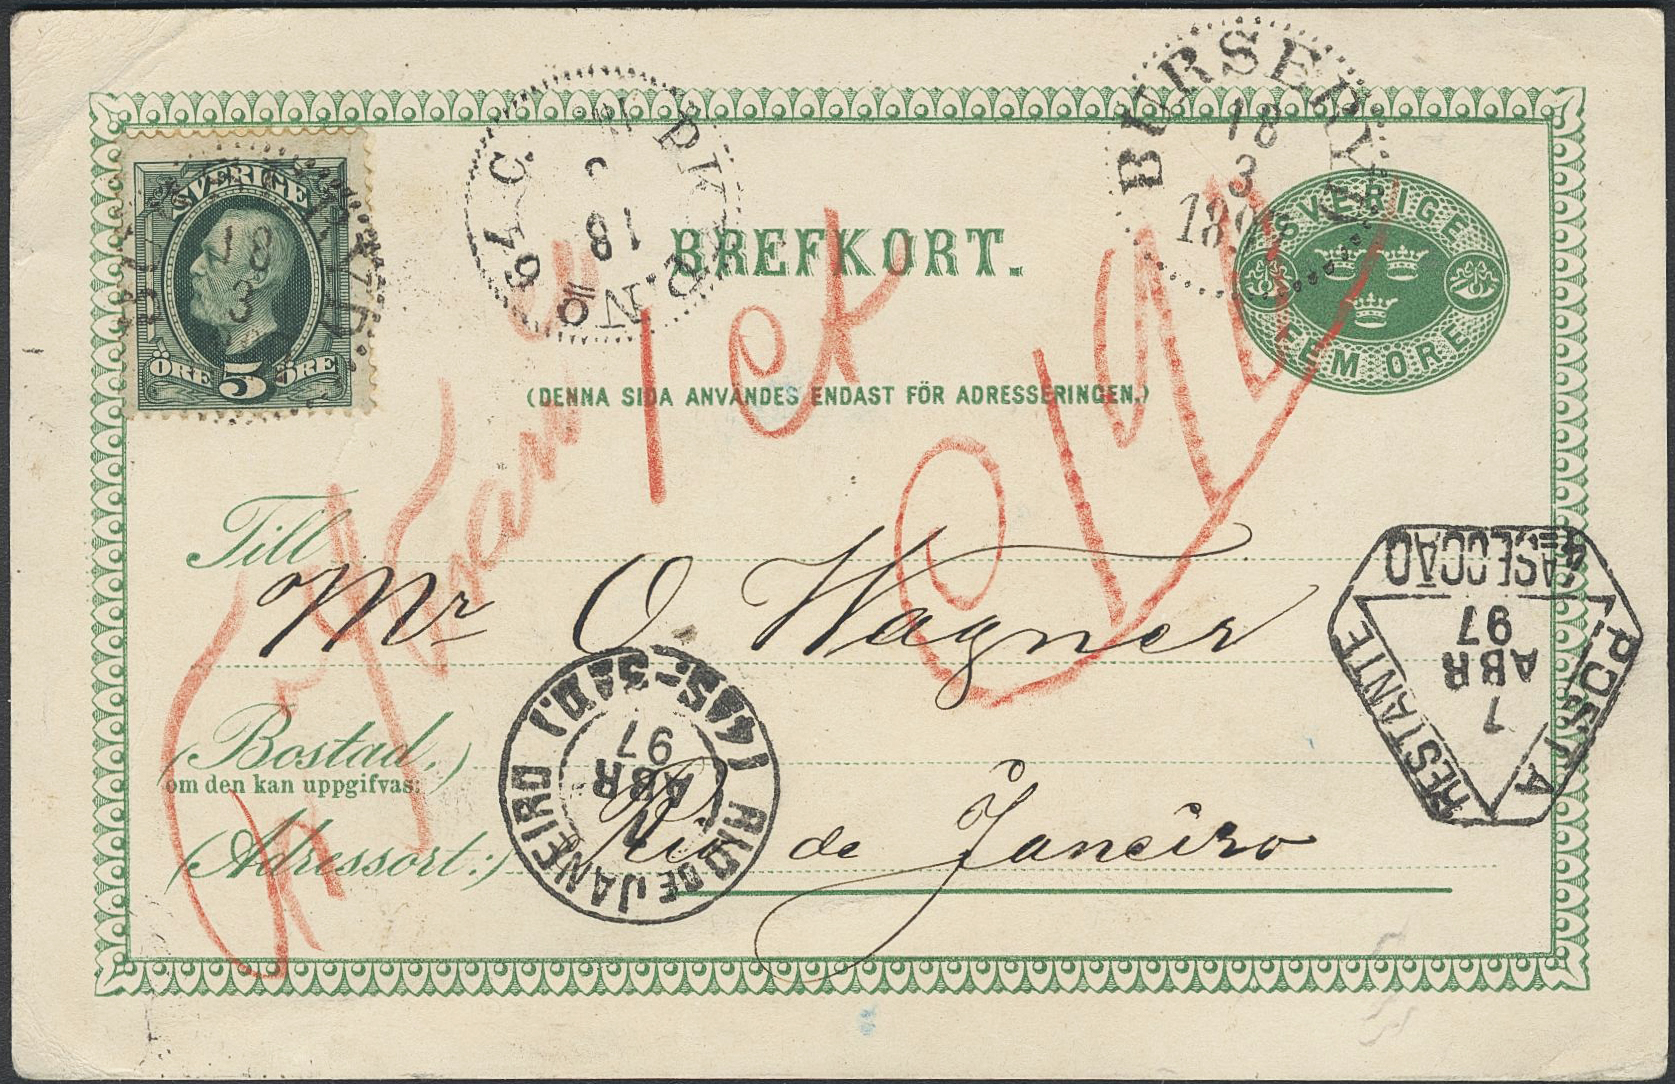 SVERIGE
ÖRE 5 ÖRE
18
3
BURSERYD
18
3
189
PKXP. N:o 79 C.
18
3
BREFKORT.
SVERIGE
FEM ÖRE
(DENNA SIDA ANVÄNDES ENDAST FÖR ADRESSERINGEN.)
Till
Mr O Wagner
(Bostad,)
om den kan uppgifvas;
Rio de Janeiro
(Adressort:)
RIO DE JANEIRO (4ªS-3ªD.)
1
ABR
97
4ª SECÇÃO
POSTA RESTANTE
1
ABR
97